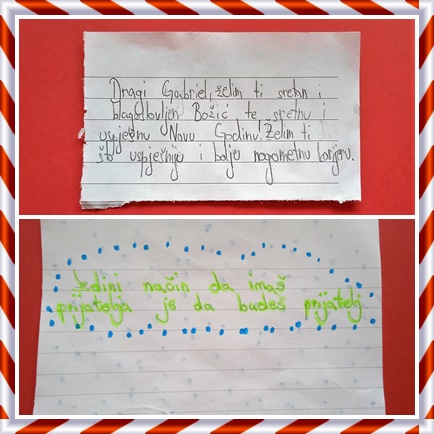 Dragi Gabriel, želim ti sretan i
blagoslovljen Božić te sretnu i
uspješnu Novu Godinu! Želim ti
što uspješniju i bolju nogometnu karijeru.
Jedini način da imaš
prijatelja je da budeš prijatelj